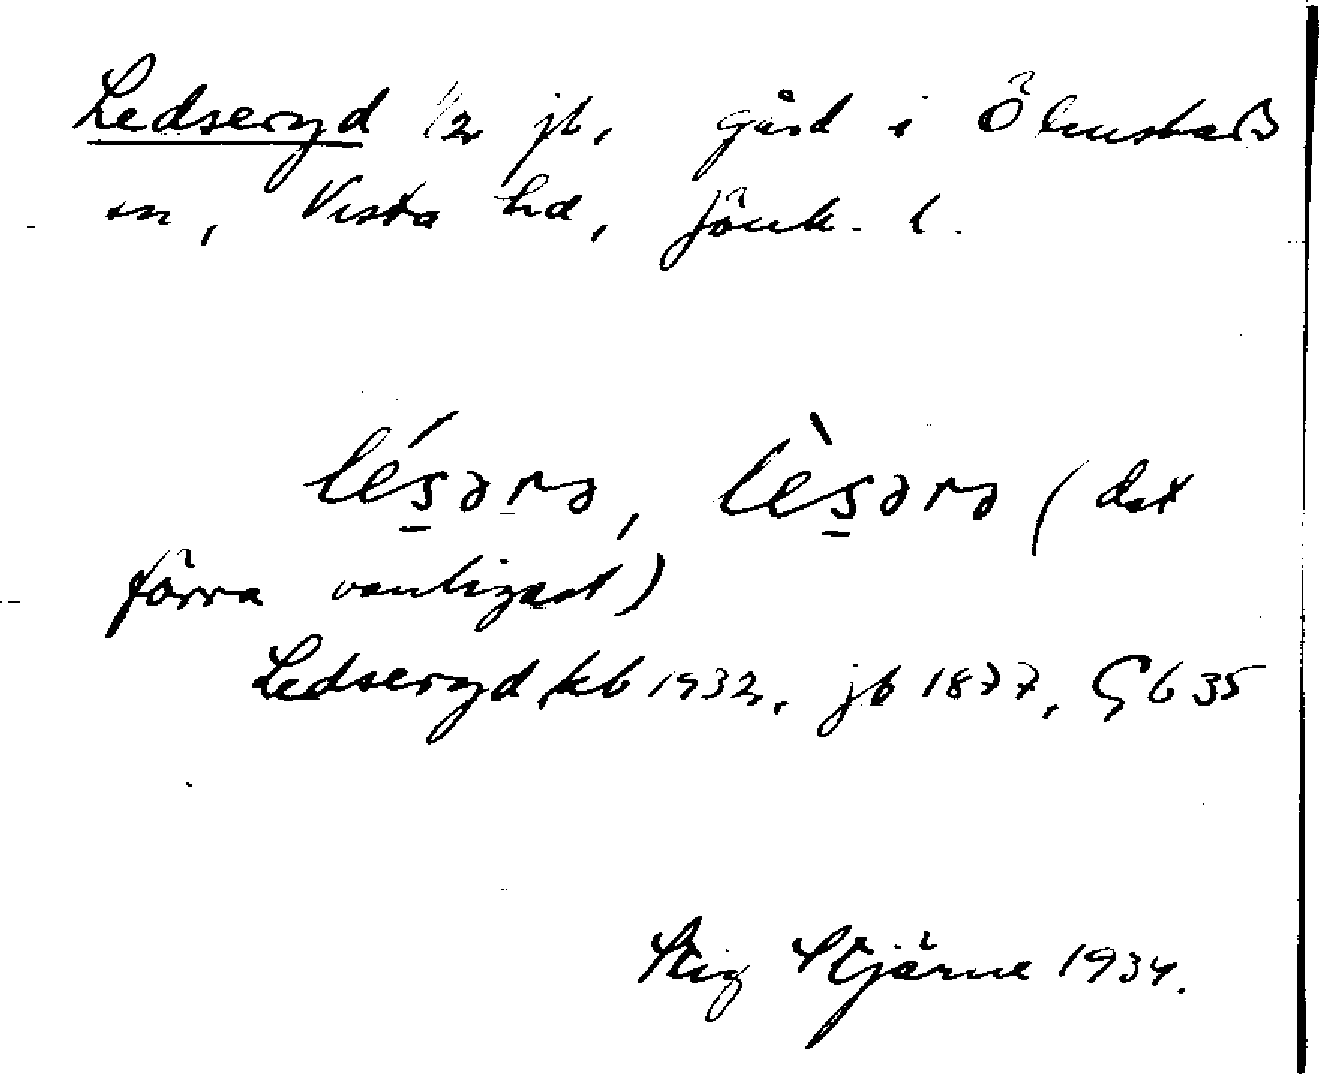 Ledseryd 1/2 jb, gård i Ölmstads
sn, Vista hd, Jönk. l.
lésərə, lèsərə (det
förra vanligast)
Ledseryd kb 1932, jb 1877, Gb 35
Stig Stjärne 1934.